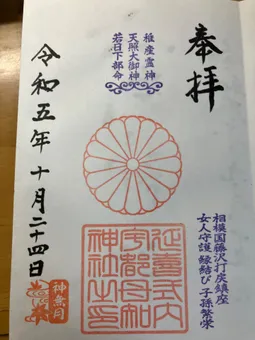 奉拝
稚産霊神
天照大御神
若日下部命
相模国藤沢打戻鎮座
女人守護 縁結び 子孫繁栄
延喜式内
宇都母知
神社之印
令和五年十月二十四日
神無月